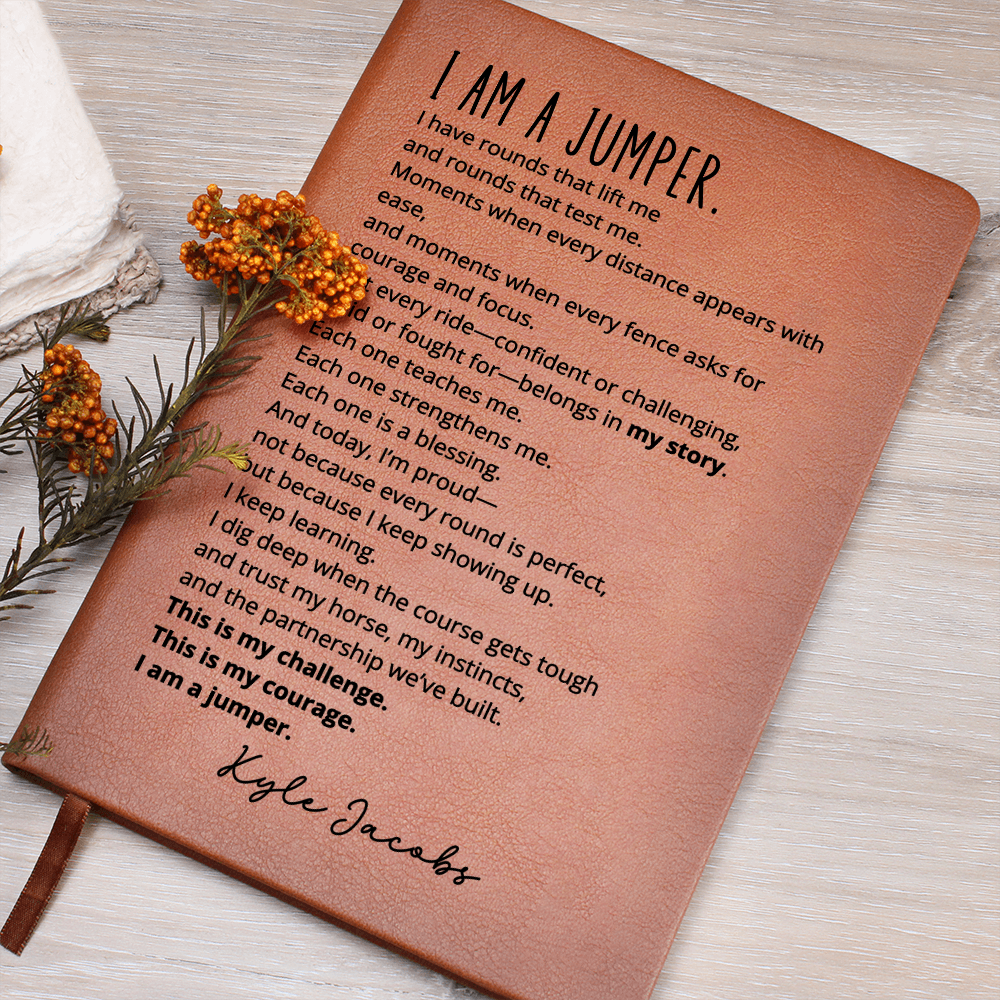 I AM A JUMPER.
I have rounds that lift me
and rounds that test me.
Moments when every distance appears with
ease,
and moments when every fence asks for
courage and focus.
every ride—confident or challenging,
or fought for—belongs in my story.
Each one teaches me.
Each one strengthens me.
Each one is a blessing.
And today, I'm proud—
not because every round is perfect,
but because I keep showing up.
I keep learning.
I dig deep when the course gets tough
and trust my horse, my instincts,
and the partnership we've built.
This is my challenge.
This is my courage.
I am a jumper.
Kyle Jacobs